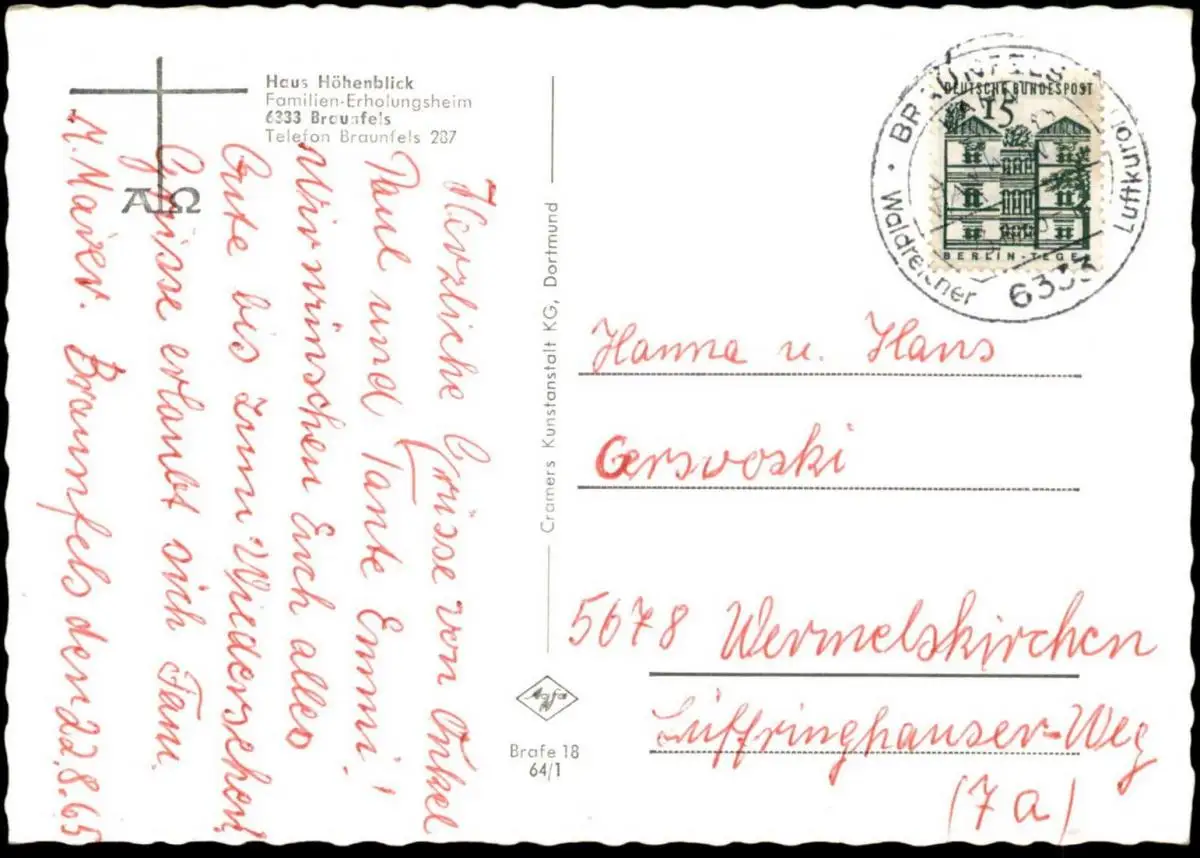 Haus Höhenblick
Familien-Erholungsheim
6333 Braunfels
Telefon Braunfels 287
Α Ω
Herzliche Grüsse von Onkel
Paul und Tante Emmi!
Wir wünschen Euch alles
Gute bis zum Wiedersehen
Grüsse erlaubt sich Fam.
M. Maier. Braunfels den 22.8.65
Cramers Kunstanstalt KG, Dortmund
Agfa
Brafe 18
64/1
BRAUNFELS
Waldreicher
Luftkurort
6333
DEUTSCHE BUNDESPOST
15
BERLIN-TEGEL
Hanna u. Hans
Gersvoski
5678 Wermelskirchen
Lüffringhauser-Weg
(7a)